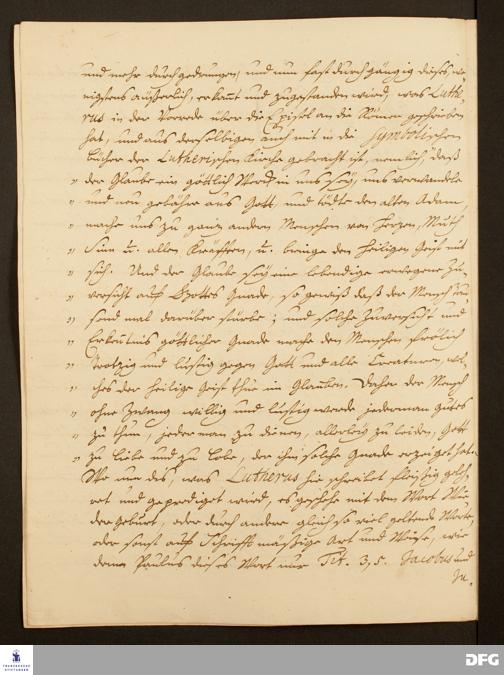 und mehr durchgedrungen, und nun fast durchgängig dieses, we-
nigstens äußerlich, erkannt und zugestanden wird, was Luthe-
rus in der Vorrede über die Epistel an die Römer geschrieben
hat, und aus derselbigen auch mit in die Symbolischen
Bücher der Lutherischen Kirche gebracht ist, nemlich, daß
„ der Glaube ein göttlich Werck in uns sey, uns verwandele
„ und neu gebähre aus Gott, und tödte den alten Adam,
„ mache uns zu gantz andern Menschen von Hertzen, Muth
„ Sinn u. allen Kräfften, u. bringe den Heiligen Geist mit
„ sich. Und der Glaube sey eine lebendige erwegene Zu-
„ versicht auf Gottes Gnade, so gewiß daß der Mensch tau-
„ send mal darüber stürbe; und solche Zuversicht und
„ Erkentnis göttlicher Gnade mache den Menschen frölich
„ trotzig und lustig gegen Gott und alle Creaturen, wel-
„ ches der Heilige Geist thue im Glauben. Daher der Mensch
„ ohne Zwang willig und lustig werde jederman gutes
„ zu thun, jederman zu dienen, allerley zu leiden, Gott
„ zu Liebe und zu Lobe, der ihm solche Gnade erzeiget hat.
Wo nun dis, was Lutherus hie schreibet fleißig geleh-
ret und geprediget wird, es geschehe mit dem Wort Wie-
dergeburt, oder durch andere gleich so viel geltende Worte,
oder sonst auf Schrifftmäßige Art und Weise, wie
denn Paulus dieses Wort nur Tit. 3, 5. Jacobus und
Ju-
FRANCKESCHE STIFTUNGEN
DFG